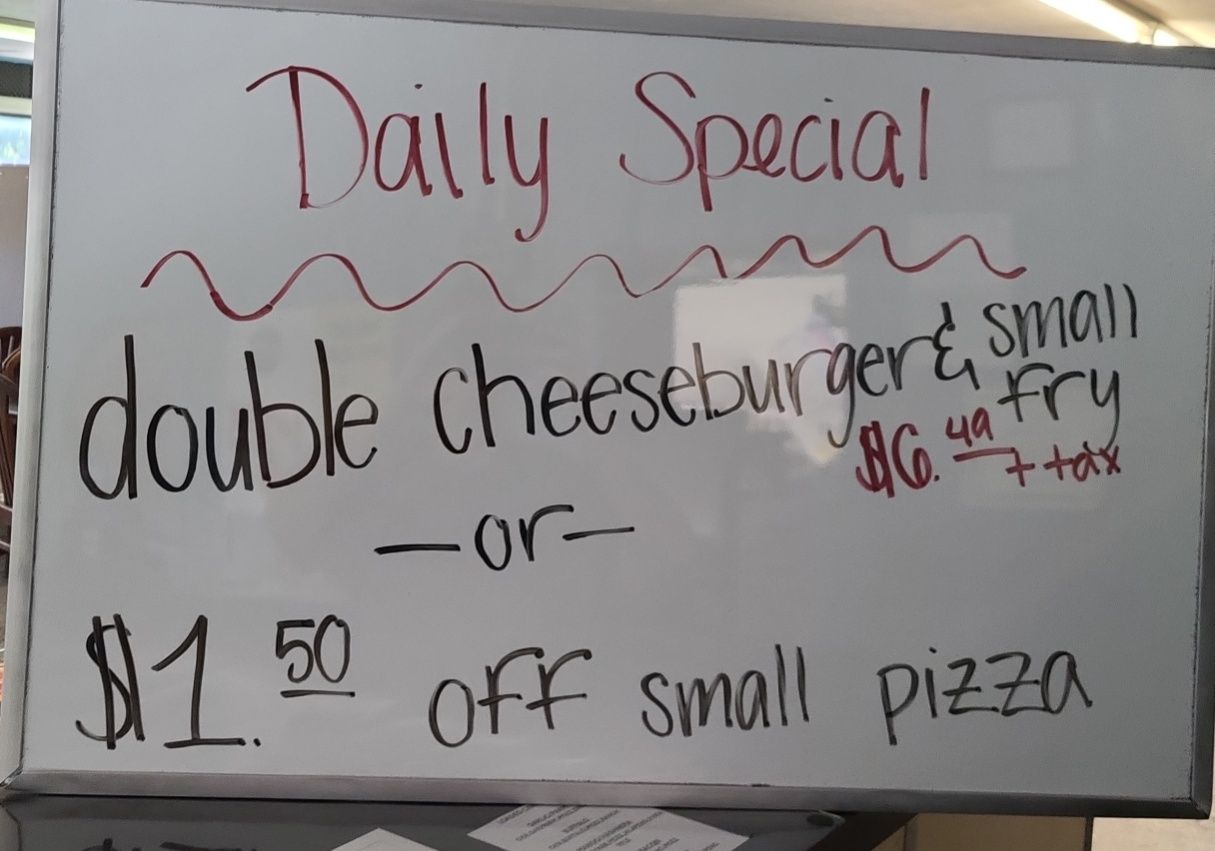 Daily Special
double cheeseburger & small fry
$6.49 + tax
—or—
$1.50 off small pizza